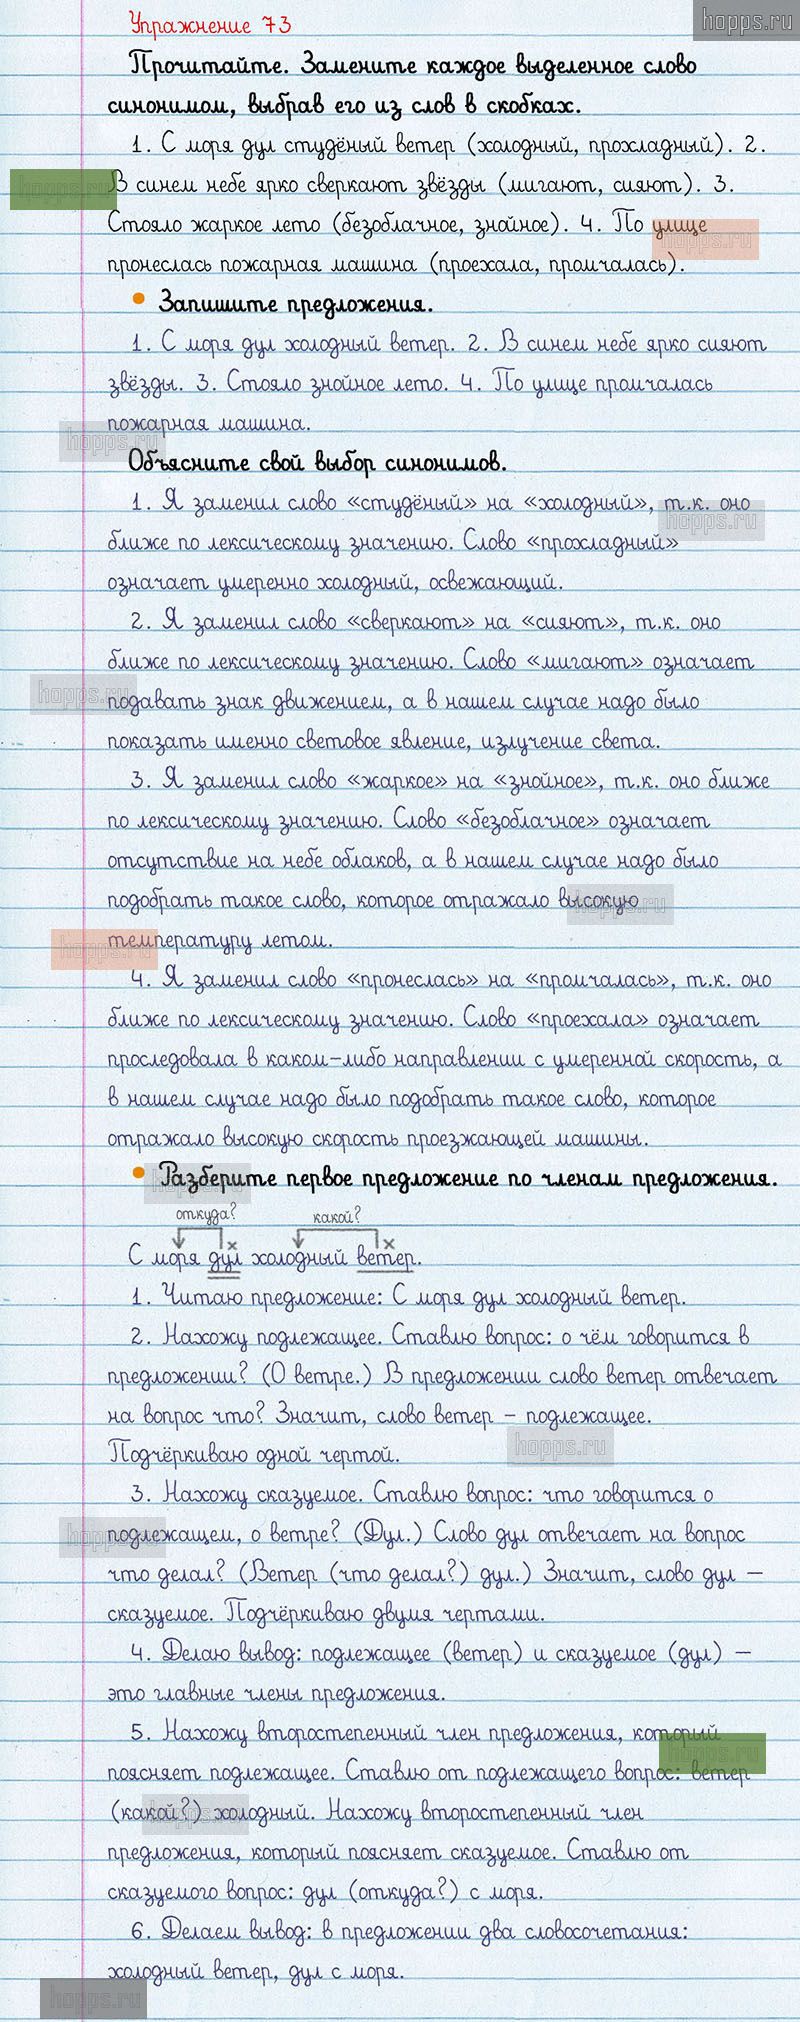 Упражнение 73
hopps.ru
Прочитайте. Замените каждое выделенное слово
синонимом, выбрав его из слов в скобках.
1. С моря дул студёный ветер (холодный, прохладный). 2.
hopps.ru
В синем небе ярко сверкают звёзды (мигают, сияют). 3.
Стояло жаркое лето (безоблачное, знойное). 4. По улице
hopps.ru
пронеслась пожарная машина (проехала, промчалась).
Запишите предложения.
1. С моря дул холодный ветер. 2. В синем небе ярко сияют
звёзды. 3. Стояло знойное лето. 4. По улице промчалась
пожарная машина.
hopps.ru
Объясните свой выбор синонимов.
1. Я заменил слово «студёный» на «холодный», т.к. оно
hopps.ru
ближе по лексическому значению. Слово «прохладный»
означает умеренно холодный, освежающий.
2. Я заменил слово «сверкают» на «сияют», т.к. оно
ближе по лексическому значению. Слово «мигают» означает
hopps.ru
подавать знак движением, а в нашем случае надо было
показать именно световое явление, излучение света.
3. Я заменил слово «жаркое» на «знойное», т.к. оно ближе
по лексическому значению. Слово «безоблачное» означает
отсутствие на небе облаков, а в нашем случае надо было
подобрать такое слово, которое отражало высокую
hopps.ru
температуру летом.
hopps.ru
4. Я заменил слово «пронеслась» на «промчалась», т.к. оно
ближе по лексическому значению. Слово «проехала» означает
проследовала в каком-либо направлении с умеренной скорость, а
в нашем случае надо было подобрать такое слово, которое
отражало высокую скорость проезжающей машины.
Разберите первое предложение по членам предложения.
hopps.ru
откуда? какой?
С моря дул холодный ветер.
1. Читаю предложение: С моря дул холодный ветер.
2. Нахожу подлежащее. Ставлю вопрос: о чём говорится в
предложении? (О ветре.) В предложении слово ветер отвечает
на вопрос что? Значит, слово ветер – подлежащее.
Подчёркиваю одной чертой.
hopps.ru
3. Нахожу сказуемое. Ставлю вопрос: что говорится о
подлежащем, о ветре? (Дул.) Слово дул отвечает на вопрос
hopps.ru
что делал? (Ветер (что делал?) дул.) Значит, слово дул –
сказуемое. Подчёркиваю двумя чертами.
4. Делаю вывод: подлежащее (ветер) и сказуемое (дул) –
это главные члены предложения.
5. Нахожу второстепенный член предложения, который
hopps.ru
поясняет подлежащее. Ставлю от подлежащего вопрос: ветер
(какой?) холодный. Нахожу второстепенный член
hopps.ru
предложения, который поясняет сказуемое. Ставлю от
сказуемого вопрос: дул (откуда?) с моря.
6. Делаем вывод: в предложении два словосочетания:
холодный ветер, дул с моря.
hopps.ru